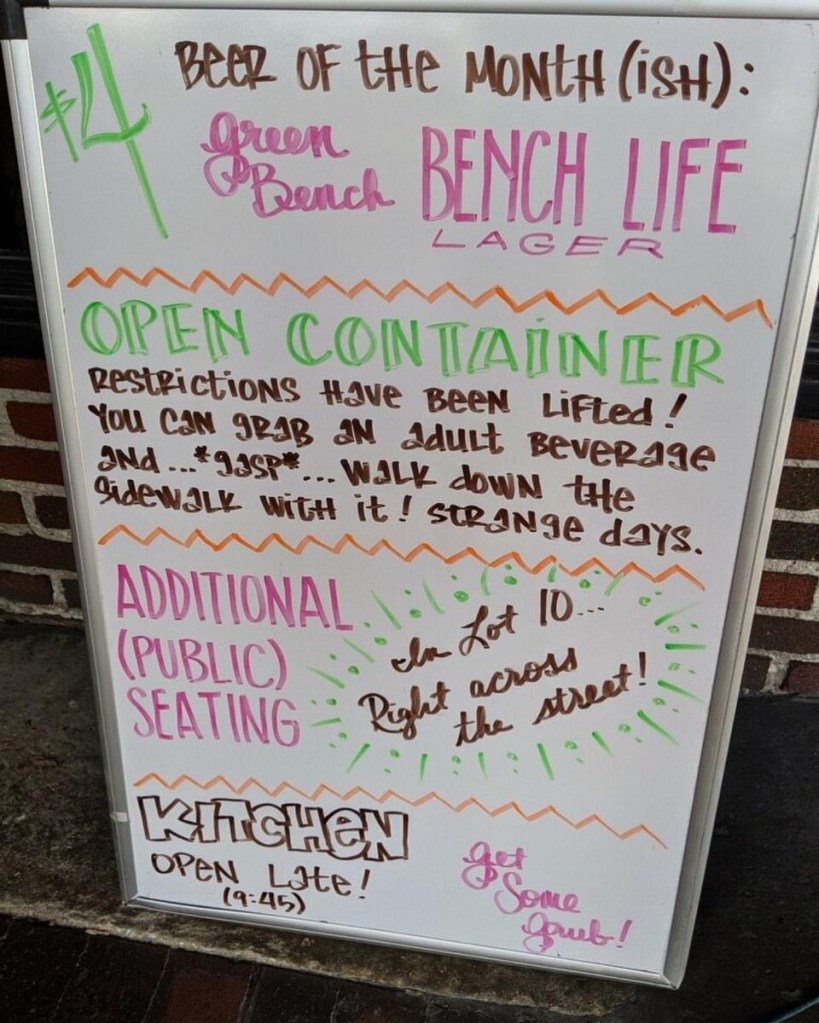 $4 BEER OF THE MONTH (ISH):
green Bench BENCH LIFE
LAGER
OPEN CONTAINER
RESTRICTIONS HAVE BEEN LIFTED!
YOU CAN GRAB AN ADULT BEVERAGE
AND... *GASP*... WALK DOWN THE
SIDEWALK WITH IT! STRANGE DAYS.
ADDITIONAL
(PUBLIC)
SEATING
In Lot 10...
Right across
the street!
KITCHEN
OPEN LATE!
(9:45)
get
Some
grub!